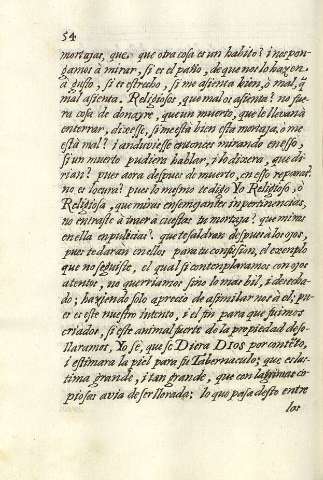 54
mortajas, que, que otra cosa es un habito? i nos pongamos à mirar, si es el paño, de que nos lo hazen,
à gusto, si es estrecho, si me assienta bien, ò mal, q̃
mal assienta. Religioso, que mal os assienta? no fuera cosa de donayre, que un muerto, que le llevan à
enterrar, dixesse, si me està bien esta mortaja, ò me
està mal? i anduviesse entonces mirando en esso,
si un muerto pudiera hablar, i lo dixera, que dirian? pues aora despues de muerto, en esso reparas?
no es locura? pues lo mesmo te digo Yo Religioso, ò
Religiosa, que miras en semejantes impertinencias,
no entraste à traer à cuestas tu mortaja? que miras
en ella en pulicia? que te saldran despues à los ojos,
pues te daran en ellos para tu confusion, el exemplo
que no seguiste, el qual si contemplaramos con ojos
atentos, no querriamos sino lo mas vil, i desechado; haziendo solo aprecio de asimilarnos à el; pues es este nuestro intento, i el fin para que fuimos
criados, si este animal fuerte de la propiedad desollaramos, Yo sè, que se Diera DIOS por contẽto,
i estimara la piel para su Tabernaculo; que es lastima grande, i tan grande, que con lagrimas copiosas avia de ser llorada; lo que passa desto entre
los